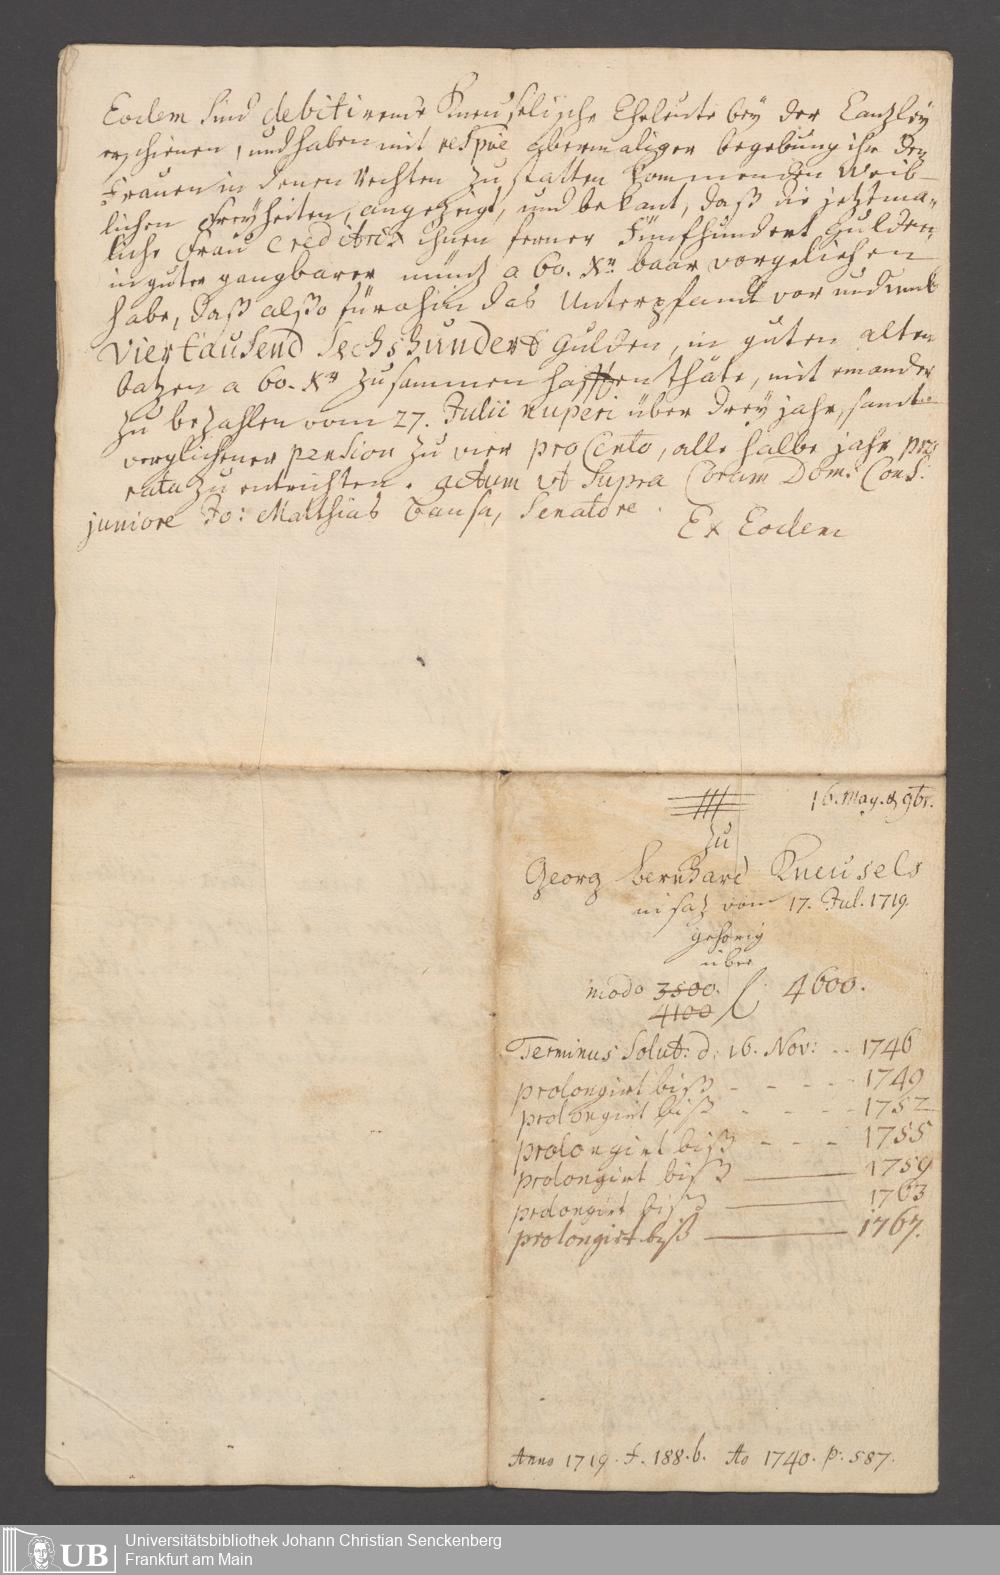 Eodem sind debitirende Kneuselische Eheleute bey der Canzley
erschienen, und haben mit respve abermaliger begebung ihr der
Frauen in denen Rechten zu statten kommenden Weib-
lichen Freyheiten, angezeigt, und bekant, daß die jetztma-
lige Frau Creditrix ihnen ferner Fünfhundert Gulden,
in guter gangbarer müntz a 60. Xr. baar vorgeliehen
habe, daß alßo fürohin das Unterpfandt vor und umb
Viertausend Sechshundert Gulden, in guten alten
batzen a 60. Xr. zusammen hafften thäte, mit einander
zu bezahlen vom 27. Julii nuperi über drey jahr, samt
verglichener pension zu vier pro Cento, alle halbe jahr pro
rata zu entrichten. actum ut supra Coram Dom: Cons:
juniore Jo: Matthias Bansa, Senatore.
Ex Eodem
16. May. & 9br.
zu
Georg Bernhard Kneusels
insatz vom 17. Jul. 1719.
gehörig
über
modo 3500. f 4600.
4100
Terminus Solut: d. 16. Nov: - - 1746
prolongirt biß - - - - 1749
prolongirt biß - - - - 1752
prolongirt biß - - - 1755
prolongirt biß — 1759
prolongirt biß — 1763
prolongirt biß — 1767.
Anno 1719. f. 188. b. Ao 1740. p: 587.
UB
Universitätsbibliothek Johann Christian Senckenberg
Frankfurt am Main